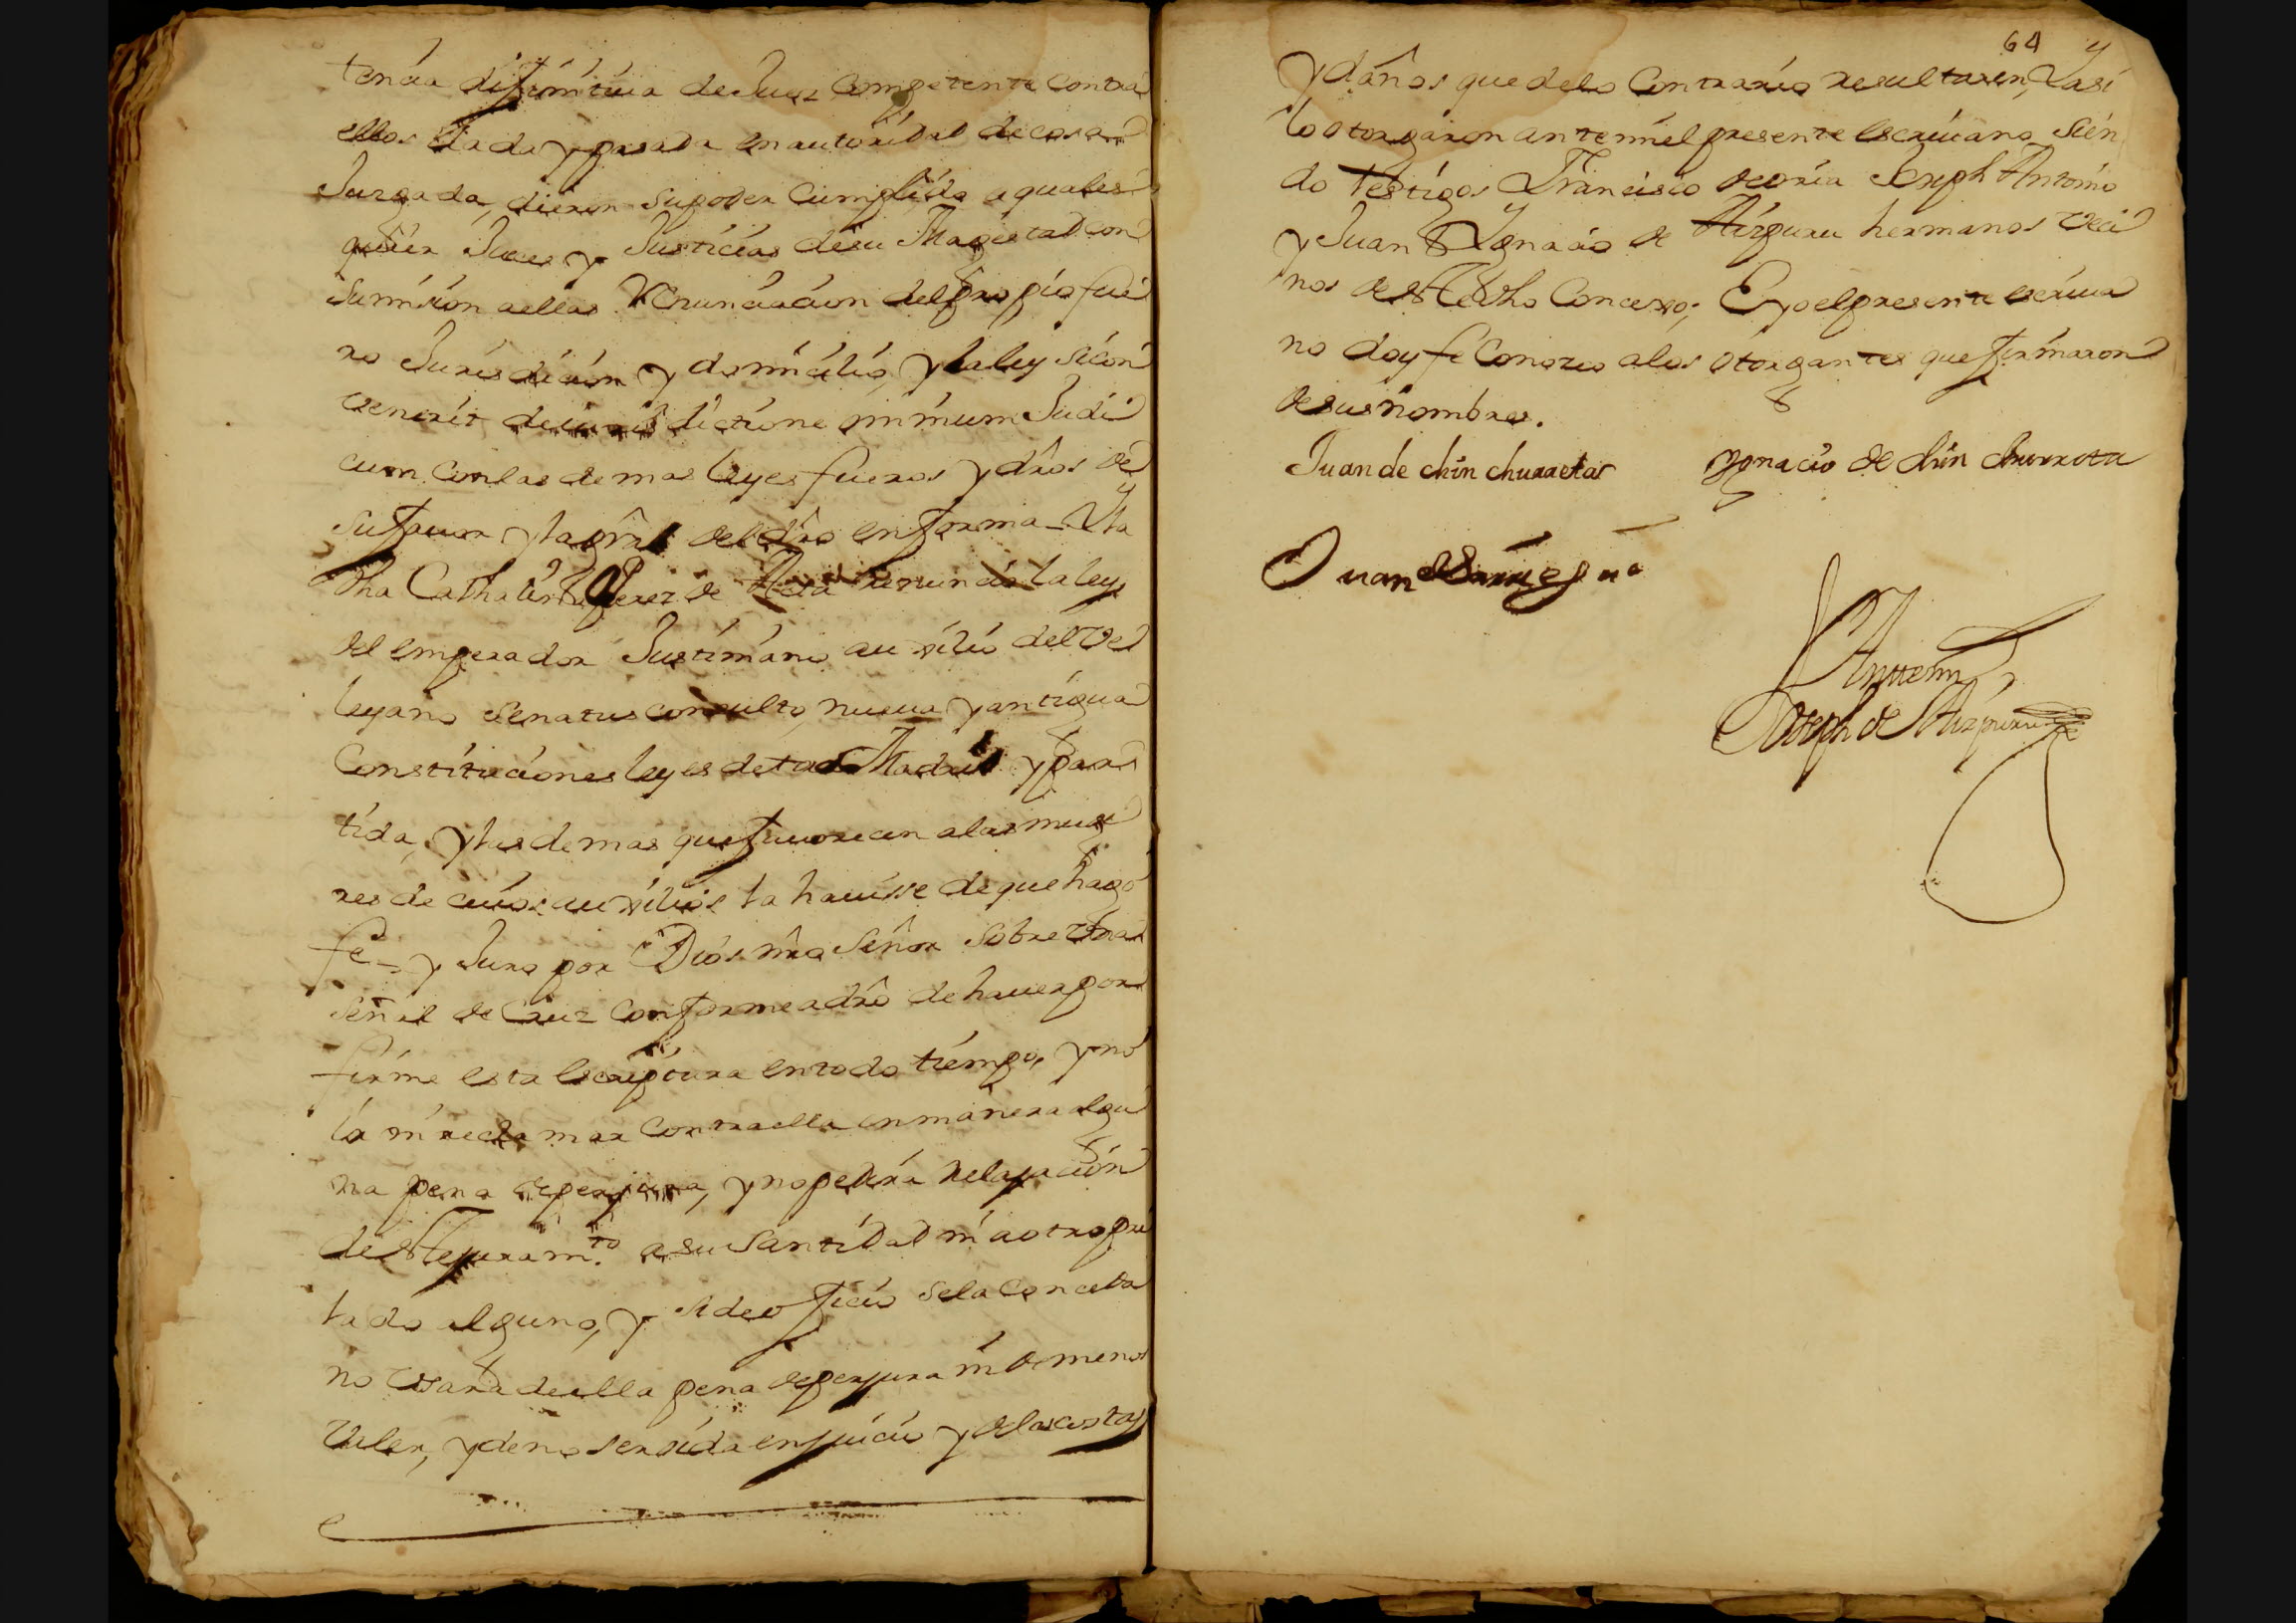 tencia difinitiva de Juez Competente contra
ellos dada y pasada en autoridad de cosa
Juzgada, dieron su poder Cumplido a quales
quier Jueces y Justicias de su Magestad con
Sumision a ellas Renunciacion del propio fue
ro Jurisdicion y domicilio, y la ley sicon
venerit de iurisdictione omnium Judi
cum con las demas leyes fueros y dros de
su favor y la gnral del dro en forma - Y la
dha Cathalina Perez de renuncio la ley
del emperador Justiniano auxilio del Ve
leyano Senatus consulto, nueua y antigua
Constituciones leyes de toro Madrid y par
tida, y las demas que favorecen a las muge
res de cuios auxilios la hauisse de que hago
fe - y Juro por Dios nro Señor sobre una
señal de Cruz Conforme a dro de hauer por
firme esta escriptura en todo tiempo, y no
la ni reclamar contra ella en manera algu
na pena de perjura, y no pedira relaxacion
de este juramto. a su Santidad ni a otro pre
lado alguno, y si de oficio se la Conceda
no usara de ella pena de perjura ni de menos
valer, y de no ser oida en juicio y de las costas
64
y daños que de lo Contrario resultaren, Y asi
lo otorgaron ante mi el presente escriuano, Sien
do testigos Francisco de oria Joseph Antonio
y Juan Ygnacio de Aizpuru hermanos veci
nos de este dho Concexo; E yo el presente escriua
no doy fe Conozco a los otorgantes que firmaron
de sus nombres.
Juan de chin churretar Ygnacio de chin churreta
Juan de
Ante mi
Joseph de Aizpuru